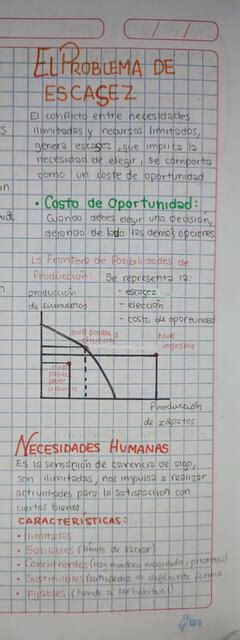 El Problema de
Escasez
El conflicto entre necesidades
ilimitadas y recursos limitados,
genera escasez, que implica la
necesidad de elegir, se comporta
como un coste de oportunidad
• Costo de Oportunidad:
Cuando debes elegir una decisión,
dejando de lado las demás opciones
La Frontera de Posibilidades de
Producción: Se representa la:
- escasez
- elección
- costo de oportunidad
producción
de
nivel posible y
eficiente
Nivel
imposible
nivel
posible
pero
Producción
de zapatos
Necesidades Humanas
Es la sensación de carencia de algo,
son ilimitadas, nos impulsa a realizar
actividades para la satisfacción con
ciertos bienes.
Características:
• Ilimitadas
• Saciables (límite de saciar)
• Concurrentes (hay muchas necesidades, prioridad)
• Sustituibles (satisfecho de diferente forma
• Fijables (tiende a ser habitual)